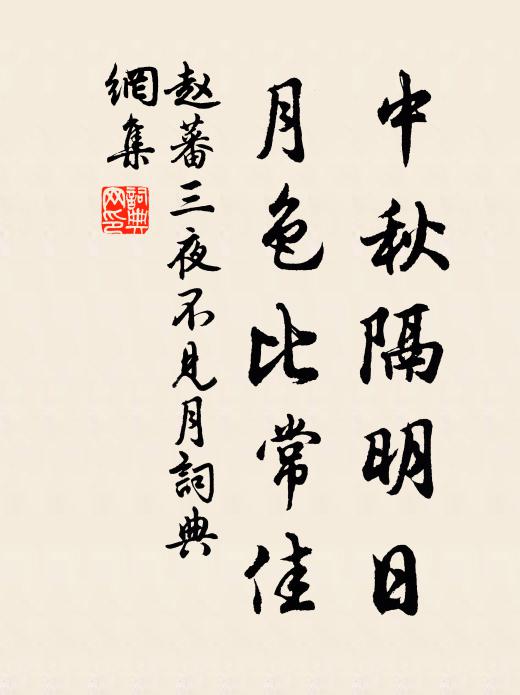 中秋隔明日
月色比常佳
赵蕃三夜不见月詞典
網集
詞典网印